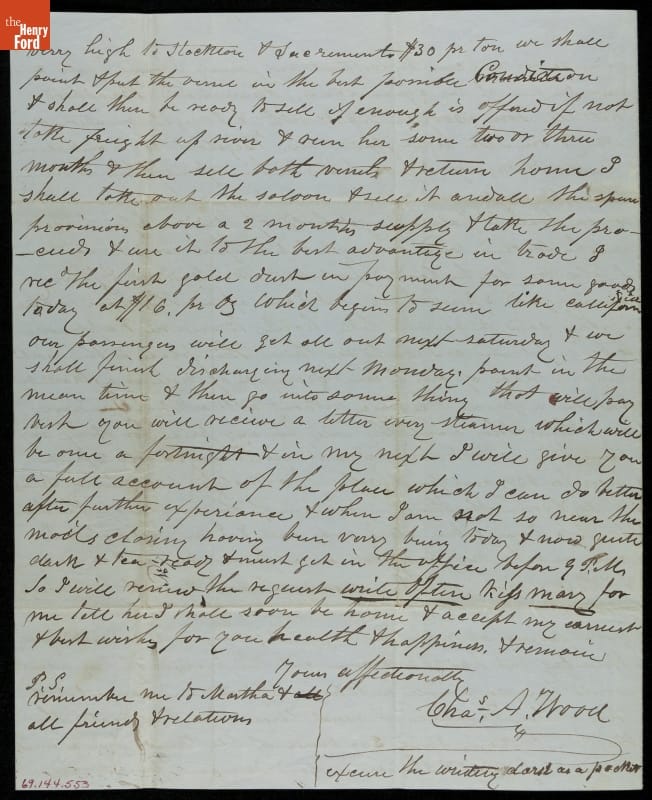 the
Henry
Ford
verry high to Stockton & Sacremento $30 pr ton we shall
paint & put the vessel in the best possible Condition
& shall then be ready to sell if enough is offered if not
take freight up river & run her some two or three
months & then sell both vessels & return home I
shall take out the saloon & sell it and all the spare
provisions above a 2 months supply & take the pro-
-ceeds & use it to the best advantage in trade I
recd the first gold dust in payment for some goods
today at $16. pr Oz which begins to seem like califfornia
our passengers will get all out next saturday & we
shall finish discharging next Monday. paint in the
mean time & then go into some thing that will pay
best you will receive a letter every steamer which will
be once a fortnight & in my next I will give you
a full account of the place which I can do better
after further experiance & when I am not so near the
mails closing having been verry busy today & now quite
dark & tea ready & must get in the office before 9 P.M.
So I will renew the request write Often Kiss mary for
me tell her I shall soon be home & accept my earnest
& best wishes for you health & happiness. & remain
Yours affectionally
Chas. A. Wood
P.S.
remember me to Martha & all
all friends & relations
excuse the writing dark as a pocket
69.144.553